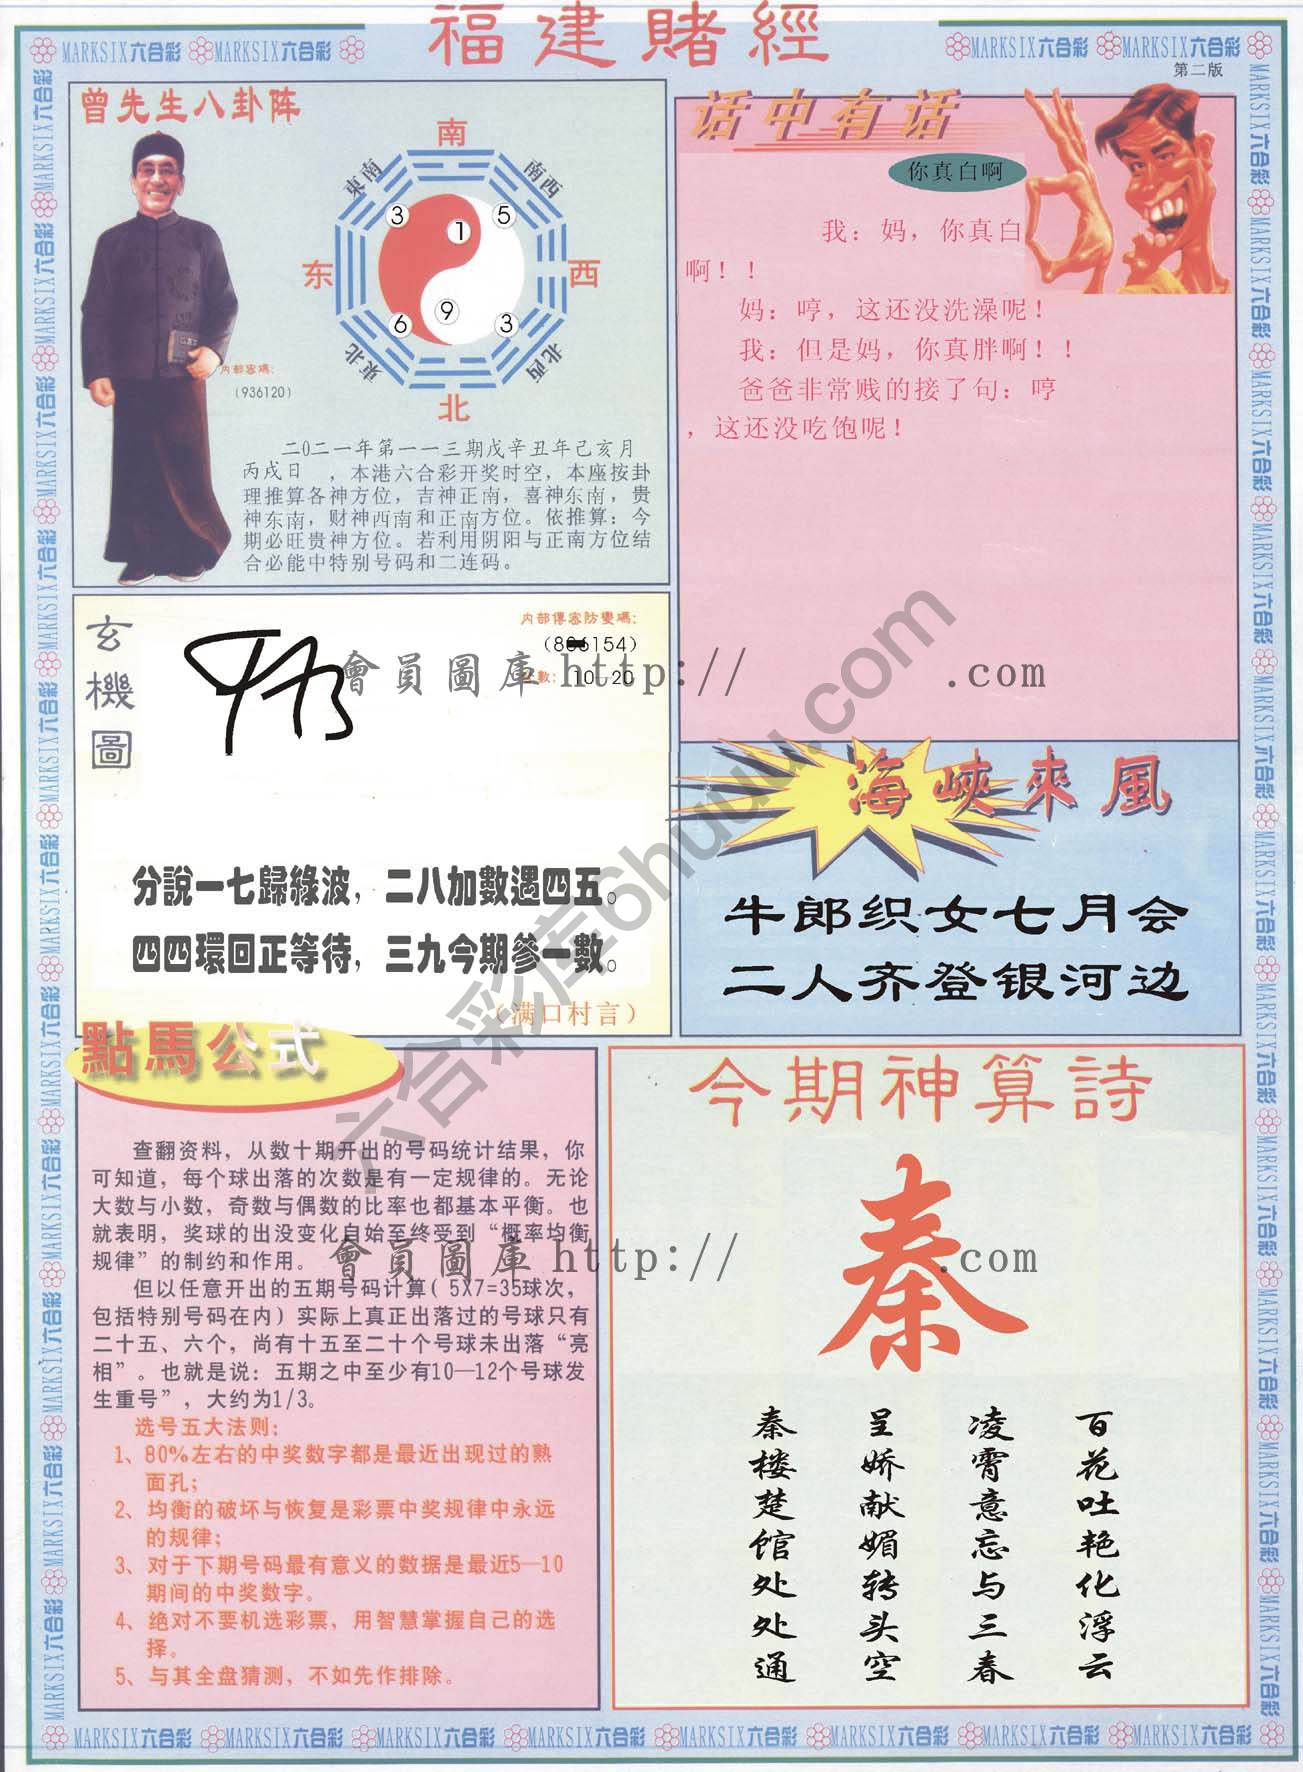 福建賭經
MARKSIX六合彩 MARKSIX六合彩
MARKSIX六合彩 MARKSIX六合彩
第二版
曾先生八卦阵
南
東南
南西
3
1
5
东
西
6
9
3
東北
北西
北
内部密碼:
(936120)
二0二一年第一一三期戊辛丑年己亥月
丙戌日 ,本港六合彩开奖时空,本座按卦
理推算各神方位,吉神正南,喜神东南,贵
神东南,财神西南和正南方位。依推算:今
期必旺贵神方位。若利用阴阳与正南方位结
合必能中特别号码和二连码。
话中有话
你真白啊
我:妈,你真白
啊!!
妈:哼,这还没洗澡呢!
我:但是妈,你真胖啊!!
爸爸非常贱的接了句:哼
,这还没吃饱呢!
玄機圖
内部傳密防變碼:
數: 10-20
會員圖庫 http:// .com
分說一七歸綠波,二八加數遇四五。
四四環回正等待,三九今期參一數。
(满口村言)
海峽來風
牛郎织女七月会
二人齐登银河边
六合彩库6huuu.com
點馬公式
查翻资料,从数十期开出的号码统计结果,你
可知道,每个球出落的次数是有一定规律的。无论
大数与小数,奇数与偶数的比率也都基本平衡。也
就表明,奖球的出没变化自始至终受到“概率均衡
规律”的制约和作用。
但以任意开出的五期号码计算(5X7=35球次,
包括特别号码在内)实际上真正出落过的号球只有
二十五、六个,尚有十五至二十个号球未出落“亮
相”。也就是说:五期之中至少有10—12个号球发
生重号”,大约为1/3。
选号五大法则:
1、80%左右的中奖数字都是最近出现过的熟
面孔;
2、均衡的破坏与恢复是彩票中奖规律中永远
的规律;
3、对于下期号码最有意义的数据是最近5—10
期间的中奖数字。
4、绝对不要机选彩票,用智慧掌握自己的选
择。
5、与其全盘猜测,不如先作排除。
會員圖庫 http:// .com
今期神算詩
秦
秦楼楚馆处处通
呈娇献媚转头空
凌霄意忘与三春
百花吐艳化浮云
MARKSIX六合彩 MARKSIX六合彩 MARKSIX六合彩 MARKSIX六合彩 MARKSIX六合彩 MARKSIX六合彩 MARKSIX六合彩 MARKSIX六合彩